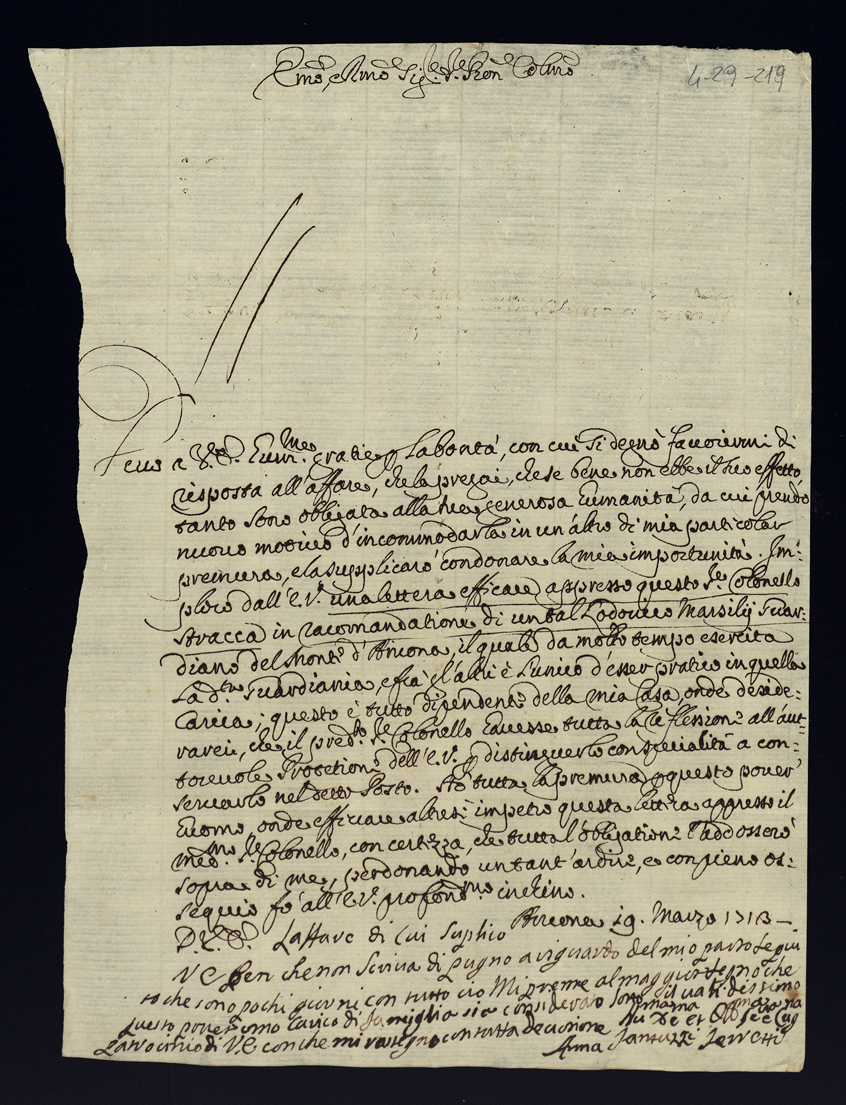 Emo, e Rmo Sig.re Sig.re Pron Colmo
4-29-219
a V.E. Eum.me gratie p la bontà, con cui si degnò favorirmi di
risposta all'affare, che la pregai, che se bene non ebbe il suo effetto
tanto sono obligata alla sua generosa Eumanità, da cui prendo
nuovo motivo d'incommodarla in un'altro di mia particolar
premura, e la supplicarò condonare la mia importunità. Im=
ploro dall'E.V. una lettera efficace appresso questo S.re Colonello
Stracca in racomandatione di un tal Lodovico Marsilij Guar=
diano del Monte d'Ancona, il quale da molto tempo esercita
la d.ta Guardiania, e frà gl'altri è l'unico d'esser pratico in quella
Carica; questo è tutto dipendente della mia Casa, onde deside=
rarei, che il pred.to S.re Colonello Eavesse tutta la reflessione all'aut=
torevole Protetione dell'E.V. p distinguerlo con specialità a con=
servarlo nel detto Posto. Hò tutta la premura p questo pover'
Euomo, onde efficace altresì impetro questa lettera appresso il
med.mo S.re Colonello, con certezza, che tutta l'obligatione l'addosserò
sopra di me, perdonando un tant'ardire, e con pieno os=
sequio fò all'E.V. profond.mo inchino.
D.V.E. Ancona 19. Marzo 1713
Laffare di cui suplico
VE ben che non scriva di pugno a riguardo del mio parto seguito
che sono pochi giorni con tutto cio Mi preme al maggior segno che
questo povero omo carico di famiglia sia considerato sotto il
patrocinio di V.E. con che mi rassegno con tutta devozione
Anna Ferretti